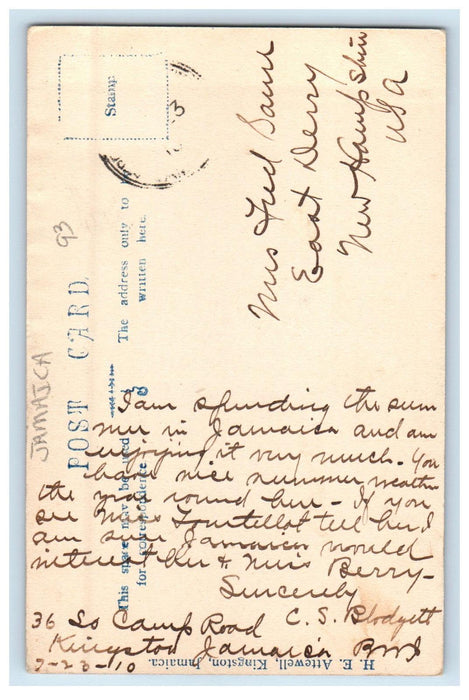 POST CARD
Stamp.
The address only to
written here.
This space may be used
for correspondence
Mrs Fred
East Derry
New Hampshire
USA
I am spending the sum
mer in Jamaica and am
enjoying it very much. You
have nice summer weather
the year round here - If you
see Miss Tourtellot tell her I
am sure Jamaica would
interest her & Miss Berry -
Sincerely
C. S. Blodgett
36 So Camp Road
Kingston Jamaica BWI
7-23-10
H. E. Attewell, Kingston, Jamaica.
JAMAICA
93